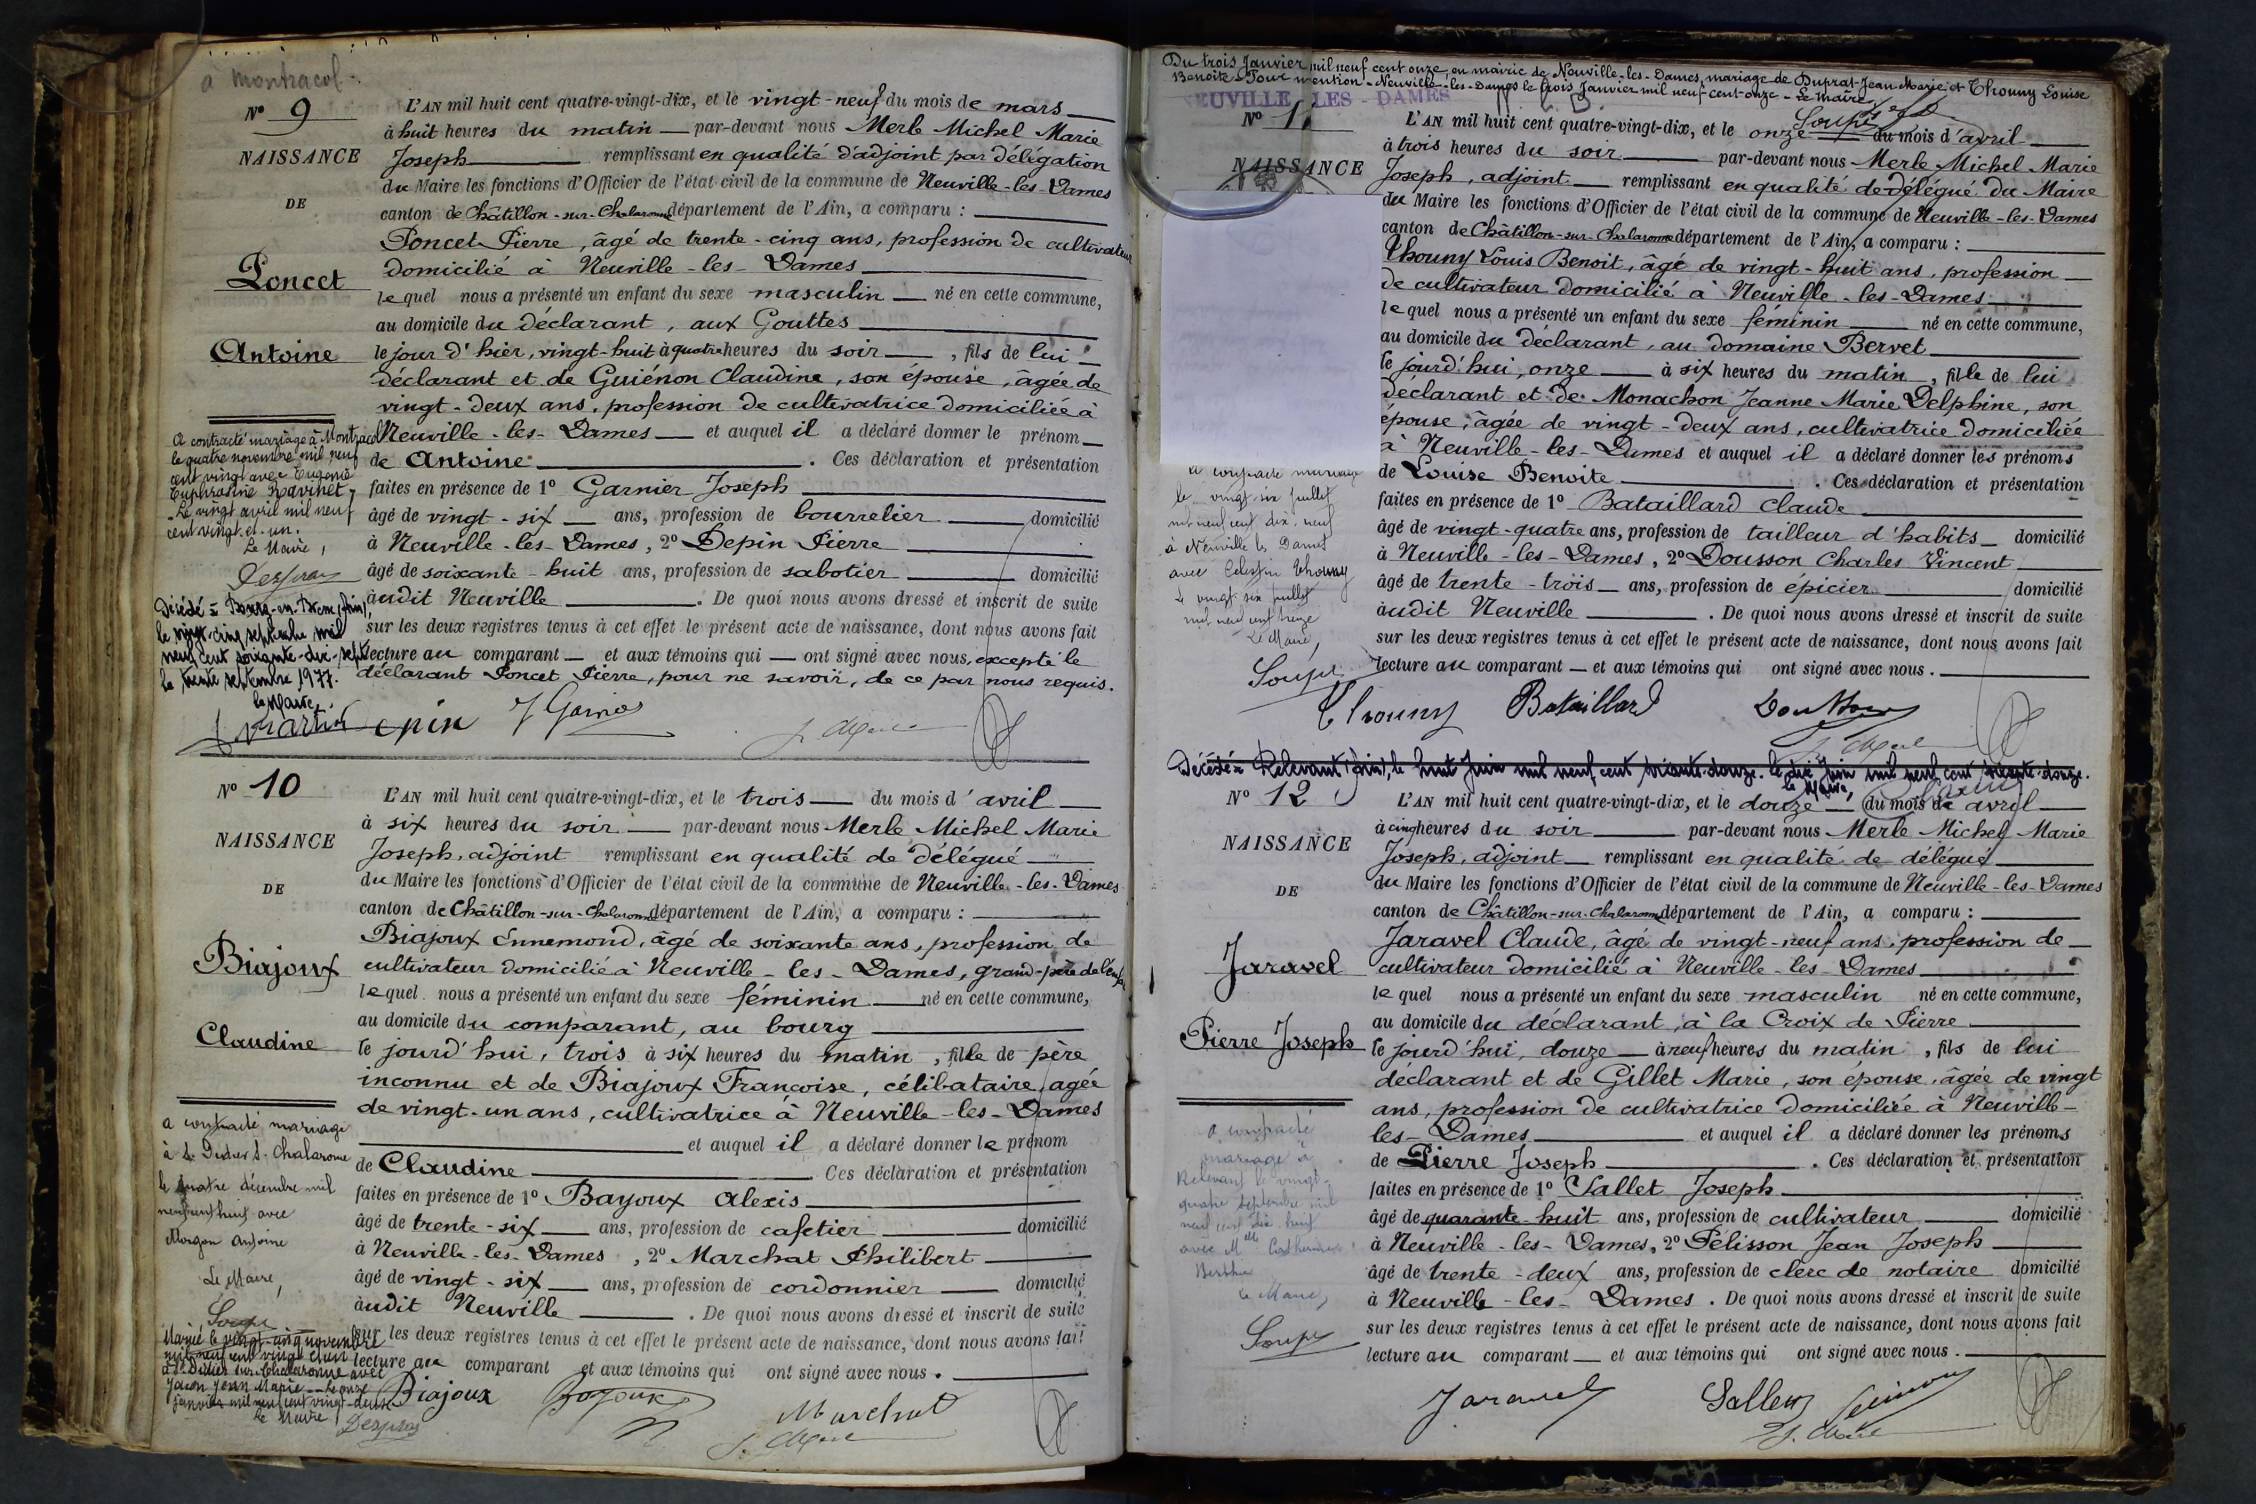 à Montracol
Nº 9
NAISSANCE
DE
Poncet
Antoine
L'AN mil huit cent quatre-vingt-dix, et le vingt-neuf du mois de mars
à huit heures du matin par-devant nous Merle Michel Marie
Joseph remplissant en qualité d'adjoint par délégation
du Maire les fonctions d'Officier de l'état civil de la commune de Neuville-les-Dames
canton de Châtillon-sur-Chalaronne département de l'Ain, a comparu :
Poncet Pierre, âgé de trente-cinq ans, profession de cultivateur
domicilié à Neuville-les-Dames
lequel nous a présenté un enfant du sexe masculin né en cette commune,
au domicile du déclarant, aux Gouttes
le jour d'hier, vingt-huit à quatre heures du soir, fils de lui
déclarant et de Guiénon Claudine, son épouse, âgée de
vingt-deux ans, profession de cultivatrice domiciliée à
Neuville-les-Dames et auquel il a déclaré donner le prénom
de Antoine. Ces déclaration et présentation
faites en présence de 1º Garnier Joseph
âgé de vingt-six ans, profession de bourrelier domicilié
à Neuville-les-Dames, 2º Depin Pierre
âgé de soixante-huit ans, profession de sabotier domicilié
audit Neuville. De quoi nous avons dressé et inscrit de suite
sur les deux registres tenus à cet effet le présent acte de naissance, dont nous avons fait
lecture au comparant et aux témoins qui ont signé avec nous, excepté le
déclarant Poncet Pierre, pour ne savoir, de ce par nous requis.
A contracté mariage à Montracol
le quatre novembre mil neuf
cent vingt avec Eugénie
Euphrasine Ravinet
Le vingt avril mil neuf
cent vingt-et-un.
Le Maire,
Décédé à Bourg-en-Bresse (Ain)
le vingt-cinq septembre mil
neuf cent soixante-dix-sept
le trente septembre 1977.
le Maire,
Depin J Garnier
Nº 10
NAISSANCE
DE
Biajoux
Claudine
L'AN mil huit cent quatre-vingt-dix, et le trois du mois d'avril
à six heures du soir par-devant nous Merle Michel Marie
Joseph, adjoint remplissant en qualité de délégué
du Maire les fonctions d'Officier de l'état civil de la commune de Neuville-les-Dames
canton de Châtillon-sur-Chalaronne département de l'Ain, a comparu :
Biajoux Ennemond, âgé de soixante ans, profession de
cultivateur domicilié à Neuville-les-Dames, grand-père de l'enfant
lequel nous a présenté un enfant du sexe féminin né en cette commune,
au domicile du comparant, au bourg
le jourd'hui, trois à six heures du matin, fille de père
inconnu et de Biajoux Françoise, célibataire, agée
de vingt-un ans, cultivatrice à Neuville-les-Dames
et auquel il a déclaré donner le prénom
de Claudine Ces déclaration et présentation
faites en présence de 1º Bayoux Alexis
âgé de trente-six ans, profession de cafetier domicilié
à Neuville-les-Dames, 2º Marchat Philibert
âgé de vingt-six ans, profession de cordonnier domicilié
audit Neuville. De quoi nous avons dressé et inscrit de suite
sur les deux registres tenus à cet effet le présent acte de naissance, dont nous avons fait
lecture au comparant et aux témoins qui ont signé avec nous.
a contracté mariage
à St Didier s. Chalaronne
le quatre décembre mil
neuf cent huit avec
Morgon Antoine
Le Maire,
Soupe
Marié le vingt-cinq novembre
mil neuf cent vingt et un
à St Didier sur Chalaronne avec
Jacon Jean Marie Le onze
janvier mil neuf cent vingt-deux
Le Maire
Biajoux Bayoux
Marchat
Du trois Janvier mil neuf cent onze, en mairie de Neuville-les-Dames, mariage de Duprat-Jean-Marie et Thouny Louise
Benoite - Pour mention - Neuville-les-Dames le trois Janvier mil neuf-cent-onze - Le Maire
Soupe
EUVILLE-LES-DAMES
Nº 1
NAISSANCE
L'AN mil huit cent quatre-vingt-dix, et le onze du mois d'avril
à trois heures du soir par-devant nous Merle Michel Marie
Joseph, adjoint remplissant en qualité de délégué du Maire
du Maire les fonctions d'Officier de l'état civil de la commune de Neuville-les-Dames
canton de Châtillon-sur-Chalaronne département de l'Ain, a comparu :
Thouny Louis Benoit, âgé de vingt-huit ans, profession
de cultivateur domicilié à Neuville-les-Dames
lequel nous a présenté un enfant du sexe féminin né en cette commune,
au domicile du déclarant, au domaine Bervet
le jourd'hui, onze à six heures du matin, fille de lui
déclarant et de Monachon Jeanne Marie Delphine, son
épouse, âgée de vingt-deux ans, cultivatrice domiciliée
à Neuville-les-Dames et auquel il a déclaré donner les prénoms
de Louise Benoite. Ces déclaration et présentation
faites en présence de 1º Bataillard Claude
âgé de vingt-quatre ans, profession de tailleur d'habits domicilié
à Neuville-les-Dames, 2º Dousson Charles Vincent
âgé de trente-trois ans, profession de épicier domicilié
audit Neuville. De quoi nous avons dressé et inscrit de suite
sur les deux registres tenus à cet effet le présent acte de naissance, dont nous avons fait
lecture au comparant et aux témoins qui ont signé avec nous.
a contracté mariage
le vingt-six juillet
mil neuf cent dix-neuf
à Neuville les Dames
avec Celestin Thouny
Le vingt six juillet
mil neuf cent
Le Maire,
Soupe
Thouny Bataillard Dousson
Décédé à Relevant (Ain), le huit juin mil neuf cent soixante-douze. le dix juin mil neuf cent soixante-douze.
le Maire,
Nº 12
NAISSANCE
DE
Jaravel
Pierre Joseph
L'AN mil huit cent quatre-vingt-dix, et le douze du mois de avril
à cinq heures du soir par-devant nous Merle Michel Marie
Joseph, adjoint remplissant en qualité de délégué
du Maire les fonctions d'Officier de l'état civil de la commune de Neuville-les-Dames
canton de Châtillon-sur-Chalaronne département de l'Ain, a comparu :
Jaravel Claude, âgé de vingt-neuf ans, profession de
cultivateur domicilié à Neuville-les-Dames
lequel nous a présenté un enfant du sexe masculin né en cette commune,
au domicile du déclarant, à la Croix de Pierre
le jourd'hui, douze à neuf heures du matin, fils de lui
déclarant et de Gillet Marie, son épouse, âgée de vingt
ans, profession de cultivatrice domiciliée à Neuville-
les-Dames et auquel il a déclaré donner les prénoms
de Pierre Joseph. Ces déclaration et présentation
faites en présence de 1º Sallet Joseph
âgé de quarante huit ans, profession de cultivateur domicilié
à Neuville-les-Dames, 2º Pélisson Jean Joseph
âgé de trente-deux ans, profession de clerc de notaire domicilié
à Neuville-les-Dames. De quoi nous avons dressé et inscrit de suite
sur les deux registres tenus à cet effet le présent acte de naissance, dont nous avons fait
lecture au comparant et aux témoins qui ont signé avec nous.
a contracté
mariage à
Relevant le vingt-
quatre septembre mil
neuf cent dix huit
avec Mlle
Berthe
Le Maire,
Soupe
Jaravel Sallet